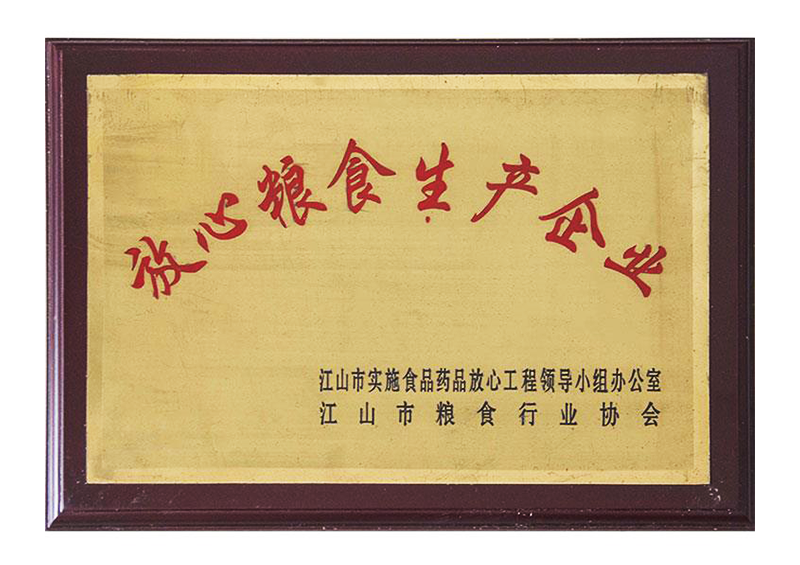 放心粮食生产企业
江山市实施食品药品放心工程领导小组办公室
江山市粮食行业协会